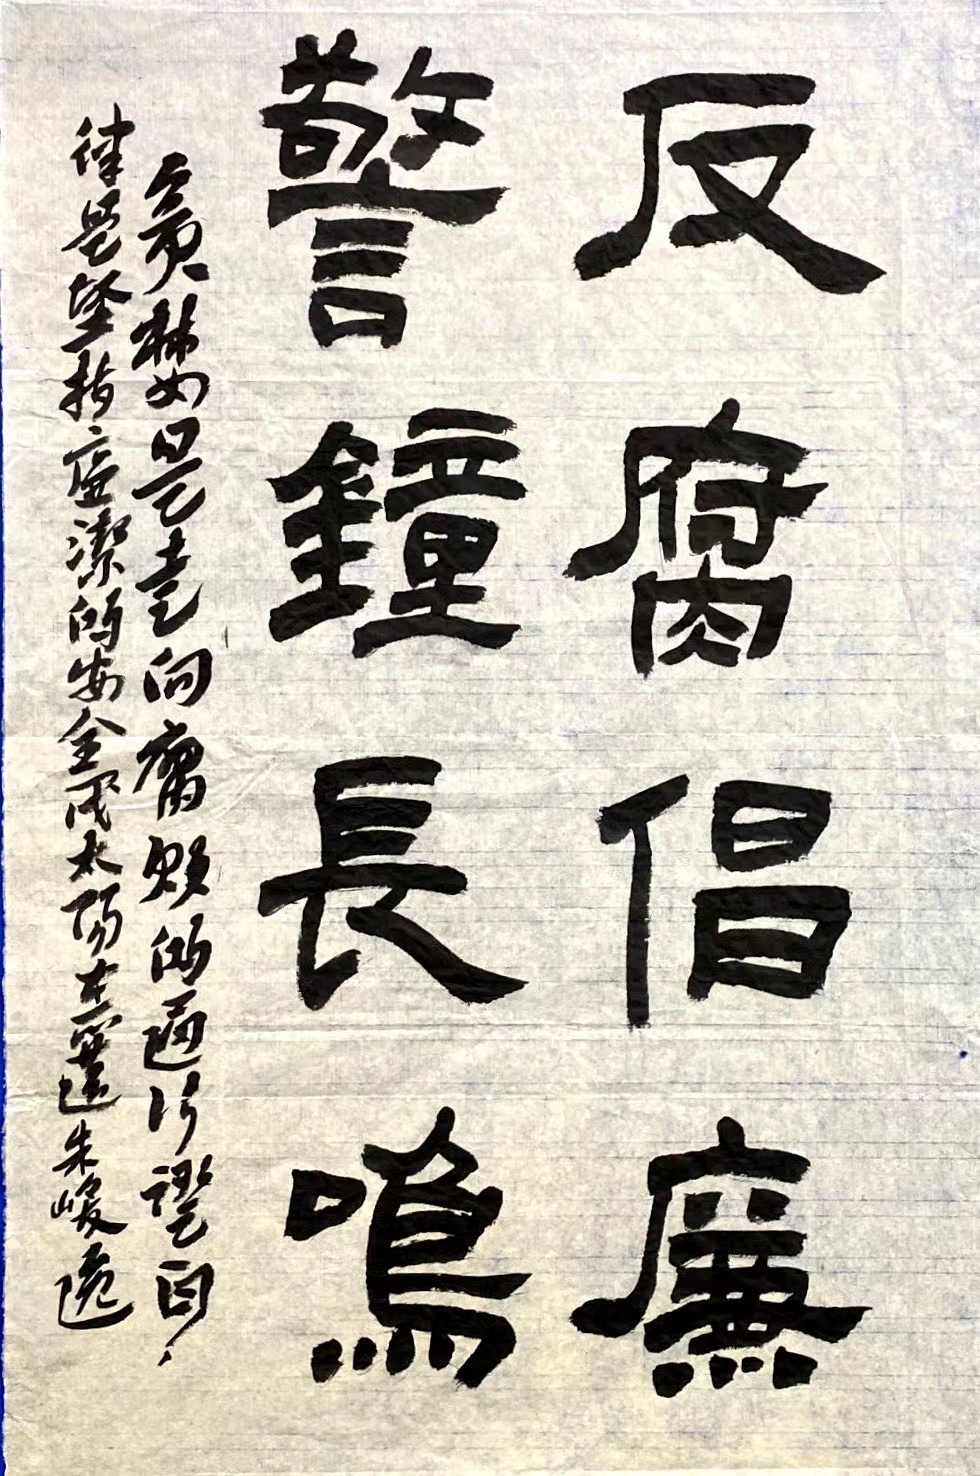 反腐倡廉
警鐘長鳴
貪婪是走向腐敗的通行證自
律是堅持廉潔的安全閥太陽朱峻逸